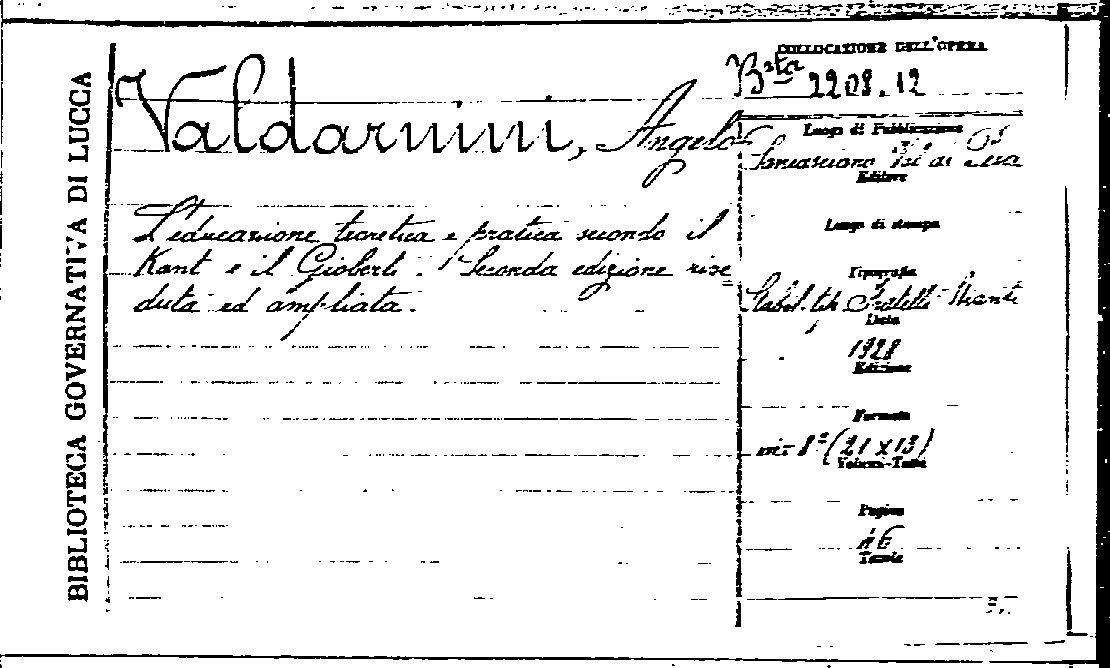 BIBLIOTECA GOVERNATIVA DI LUCCA
COLLOCAZIONE DELL'OPERA
Bsta 2208.12
Valdarnini, Angelo
Luogo di Pubblicazione
Sancasciano Val di Pesa
Editore
L'educazione teoretica e pratica secondo il
Kant e il Gioberti. Seconda edizione rive
duta ed ampliata.
Luogo di stampa
Tipografia
Stabil. tip. Fratelli Stianti
Data
1928
Edizione
Formato
in-8° (21 x 13)
Volumi-Tomi
Pagine
Tavole